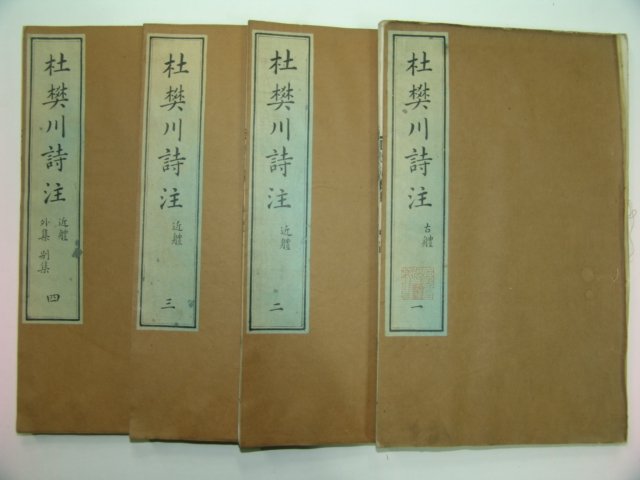 杜樊川詩注
古體
一
杜樊川詩注
近體
二
杜樊川詩注
近體
三
杜樊川詩注
近體
外集 別集
四